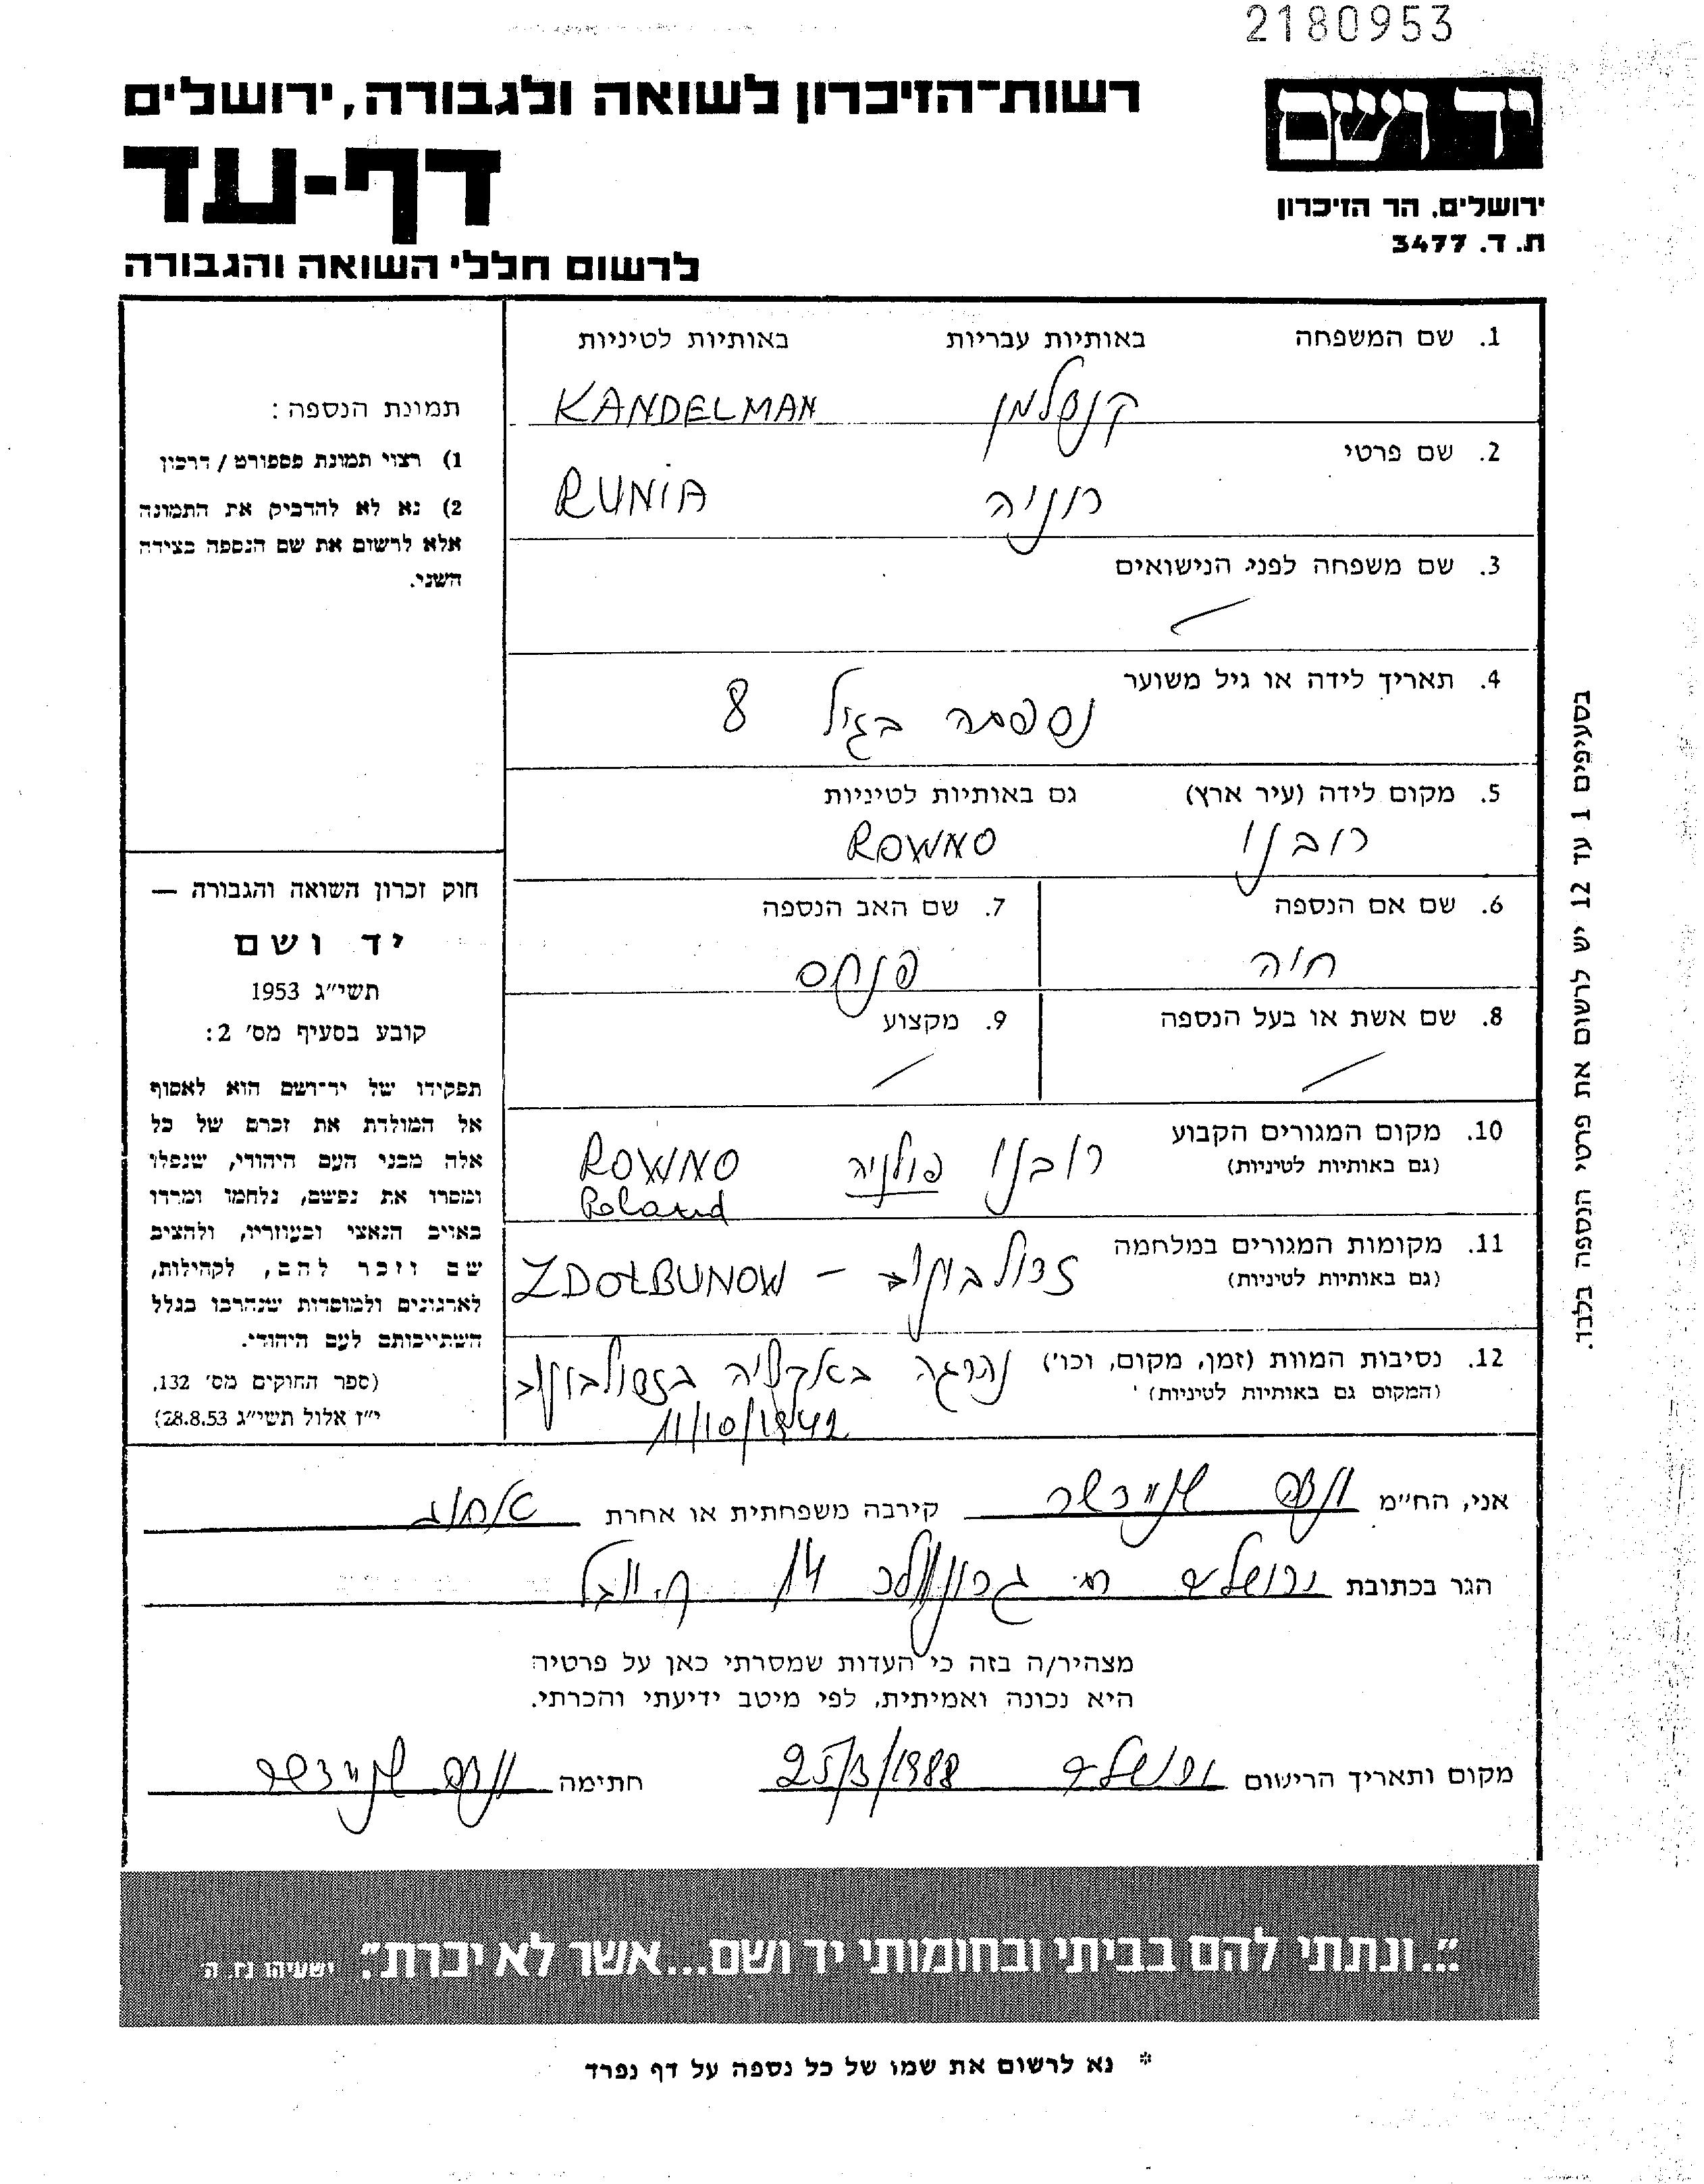 2180953
יד ושם
רשות־הזיכרון לשואה ולגבורה, ירושלים
דף-עד
ירושלים, הר הזיכרון
ת. ד. 3477
לרשום חללי השואה והגבורה
1. שם המשפחה באותיות עבריות באותיות לטיניות
קנדלמן KANDELMAN
2. שם פרטי
רוניה RUNIA
3. שם משפחה לפני הנישואים
4. תאריך לידה או גיל משוער
נספתה בגיל 8
5. מקום לידה (עיר ארץ) גם באותיות לטיניות
רובנו ROWNO
6. שם אם הנספה 7. שם האב הנספה
חיה פנחס
8. שם אשת או בעל הנספה 9. מקצוע
10. מקום המגורים הקבוע
(גם באותיות לטיניות)
רובנו פולניה ROWNO
Poland
11. מקומות המגורים במלחמה
(גם באותיות לטיניות)
זדולבונוב - ZDOŁBUNOW
12. נסיבות המוות (זמן, מקום, וכו')
(המקום גם באותיות לטיניות)
נהרגה באקציה בזדולבונוב
11/10/1942
תמונת הנספה:
1) רצוי תמונת פספורט / דרכון
2) נא לא להדביק את התמונה
אלא לרשום את שם הנספה בצידה
השני.
חוק זכרון השואה והגבורה —
יד ושם
תשי"ג 1953
קובע בסעיף מס' 2:
תפקידו של יד־ושם הוא לאסוף
אל המולדת את זכרם של כל
אלה מבני העם היהודי, שנפלו
ומסרו את נפשם, נלחמו ומרדו
באויב הנאצי ובעוזריו, ולהציב
שם וזכר להם, לקהילות,
לארגונים ולמוסדות שנחרבו בגלל
השתייכותם לעם היהודי.
(ספר החוקים מס' 132,
י"ז אלול תשי"ג 28.8.53)
בסעיפים 1 עד 12 יש לרשום את פרטי הנספה בלבד.
אני, הח"מ שניידר קירבה משפחתית או אחרת
הגר בכתובת ירושלים רח' 14
מצהיר/ה בזה כי העדות שמסרתי כאן על פרטיה
היא נכונה ואמיתית, לפי מיטב ידיעתי והכרתי.
מקום ותאריך הרישום ירושלים 25/3/1988 חתימה שניידר
"...ונתתי להם בביתי ובחומותי יד ושם...אשר לא יכרת". ישעיהו נו. ה
* נא לרשום את שמו של כל נספה על דף נפרד